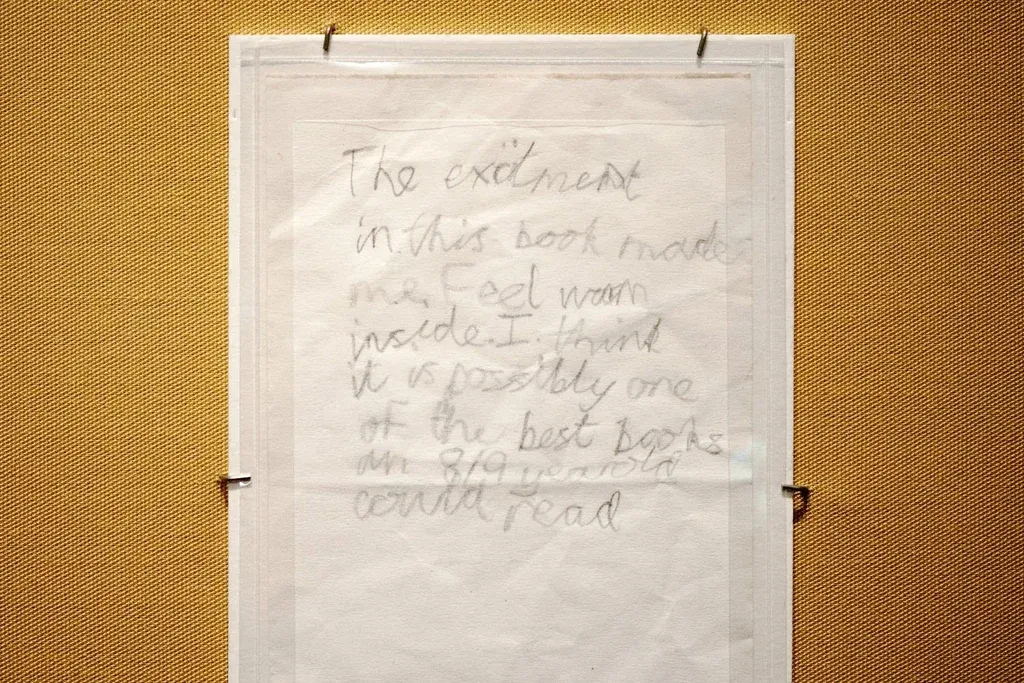 The exitment
in this book made
me Feel warm
inside. I think
it is possibly one
of the best books
an 8/9 year old
could read